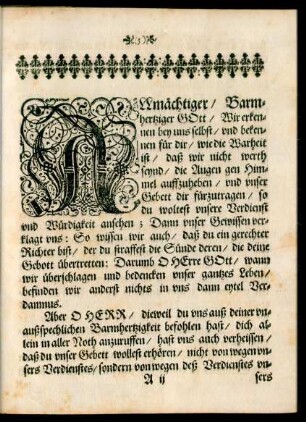 3
ALlmächtiger / Barm-
hertziger GOtt / Wir erken-
nen bey uns selbst / vnd beken-
nen für dir / wie die Warheit
ist / daß wir nicht werth
seynd / die Augen gen Him-
mel auffzuheben / vnd vnser
Gebett dir fürzutragen / so
du woltest vnsere Verdienst
vnd Würdigkeit ansehen ; Dann vnser Gewissen ver-
klagt vns : So wissen wir auch / daß du ein gerechter
Richter bist / der du straffest die Sünde deren / die deine
Gebott übertretten: Darumb O HErre GOtt / wann
wir überschlagen vnd bedencken vnser gantzes Leben /
befinden wir anderst nichts in vns dann eytel Ver-
damnus.
Aber O HERR / dieweil du vns auß deiner vn-
außsprechlichen Barmhertzigkeit befohlen hast / dich al-
lein in aller Noth anzuruffen / hast vns auch verheissen /
daß du vnser Gebett wollest erhören / nicht von wegen vn-
sers Verdienstes / sondern von wegen deß Verdienstes vn-
A ij
sers